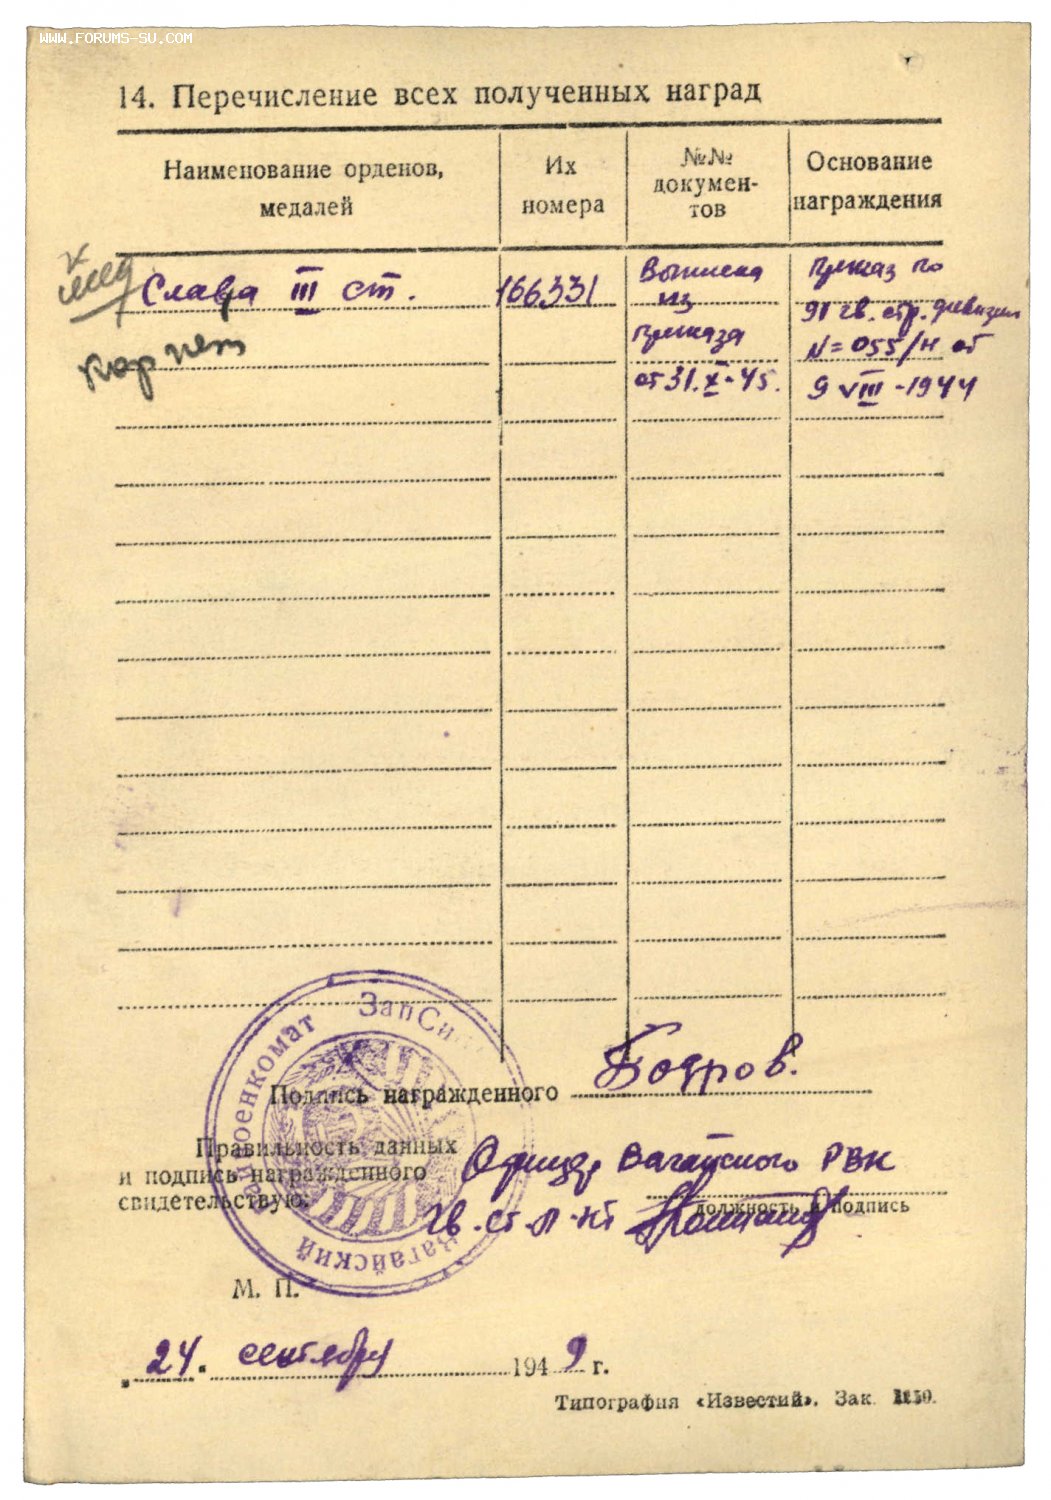 WWW.FORUMS-SU.COM
14. Перечисление всех полученных наград
Наименование орденов, медалей
Их номера
№№ документов
Основание награждения
Слава III ст.
166331
Выписка
из
приказа
от 31.X-45.
Приказ по
91 гв. стр. дивизии
N=055/н от
9 VIII-1944
кор нет
ЗапСиб
военкомат
Вагайский
Подпись награжденного Бояров.
Правильность данных
и подпись награжденного
свидетельствую:
Офицер Вагайского РВК
гв. ст. л-нт
должность и подпись
М. П.
24. сентября 1949 г.
Типография «Известий». Зак.